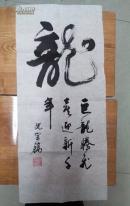 龍
巨龍騰飛
喜迎新千
年